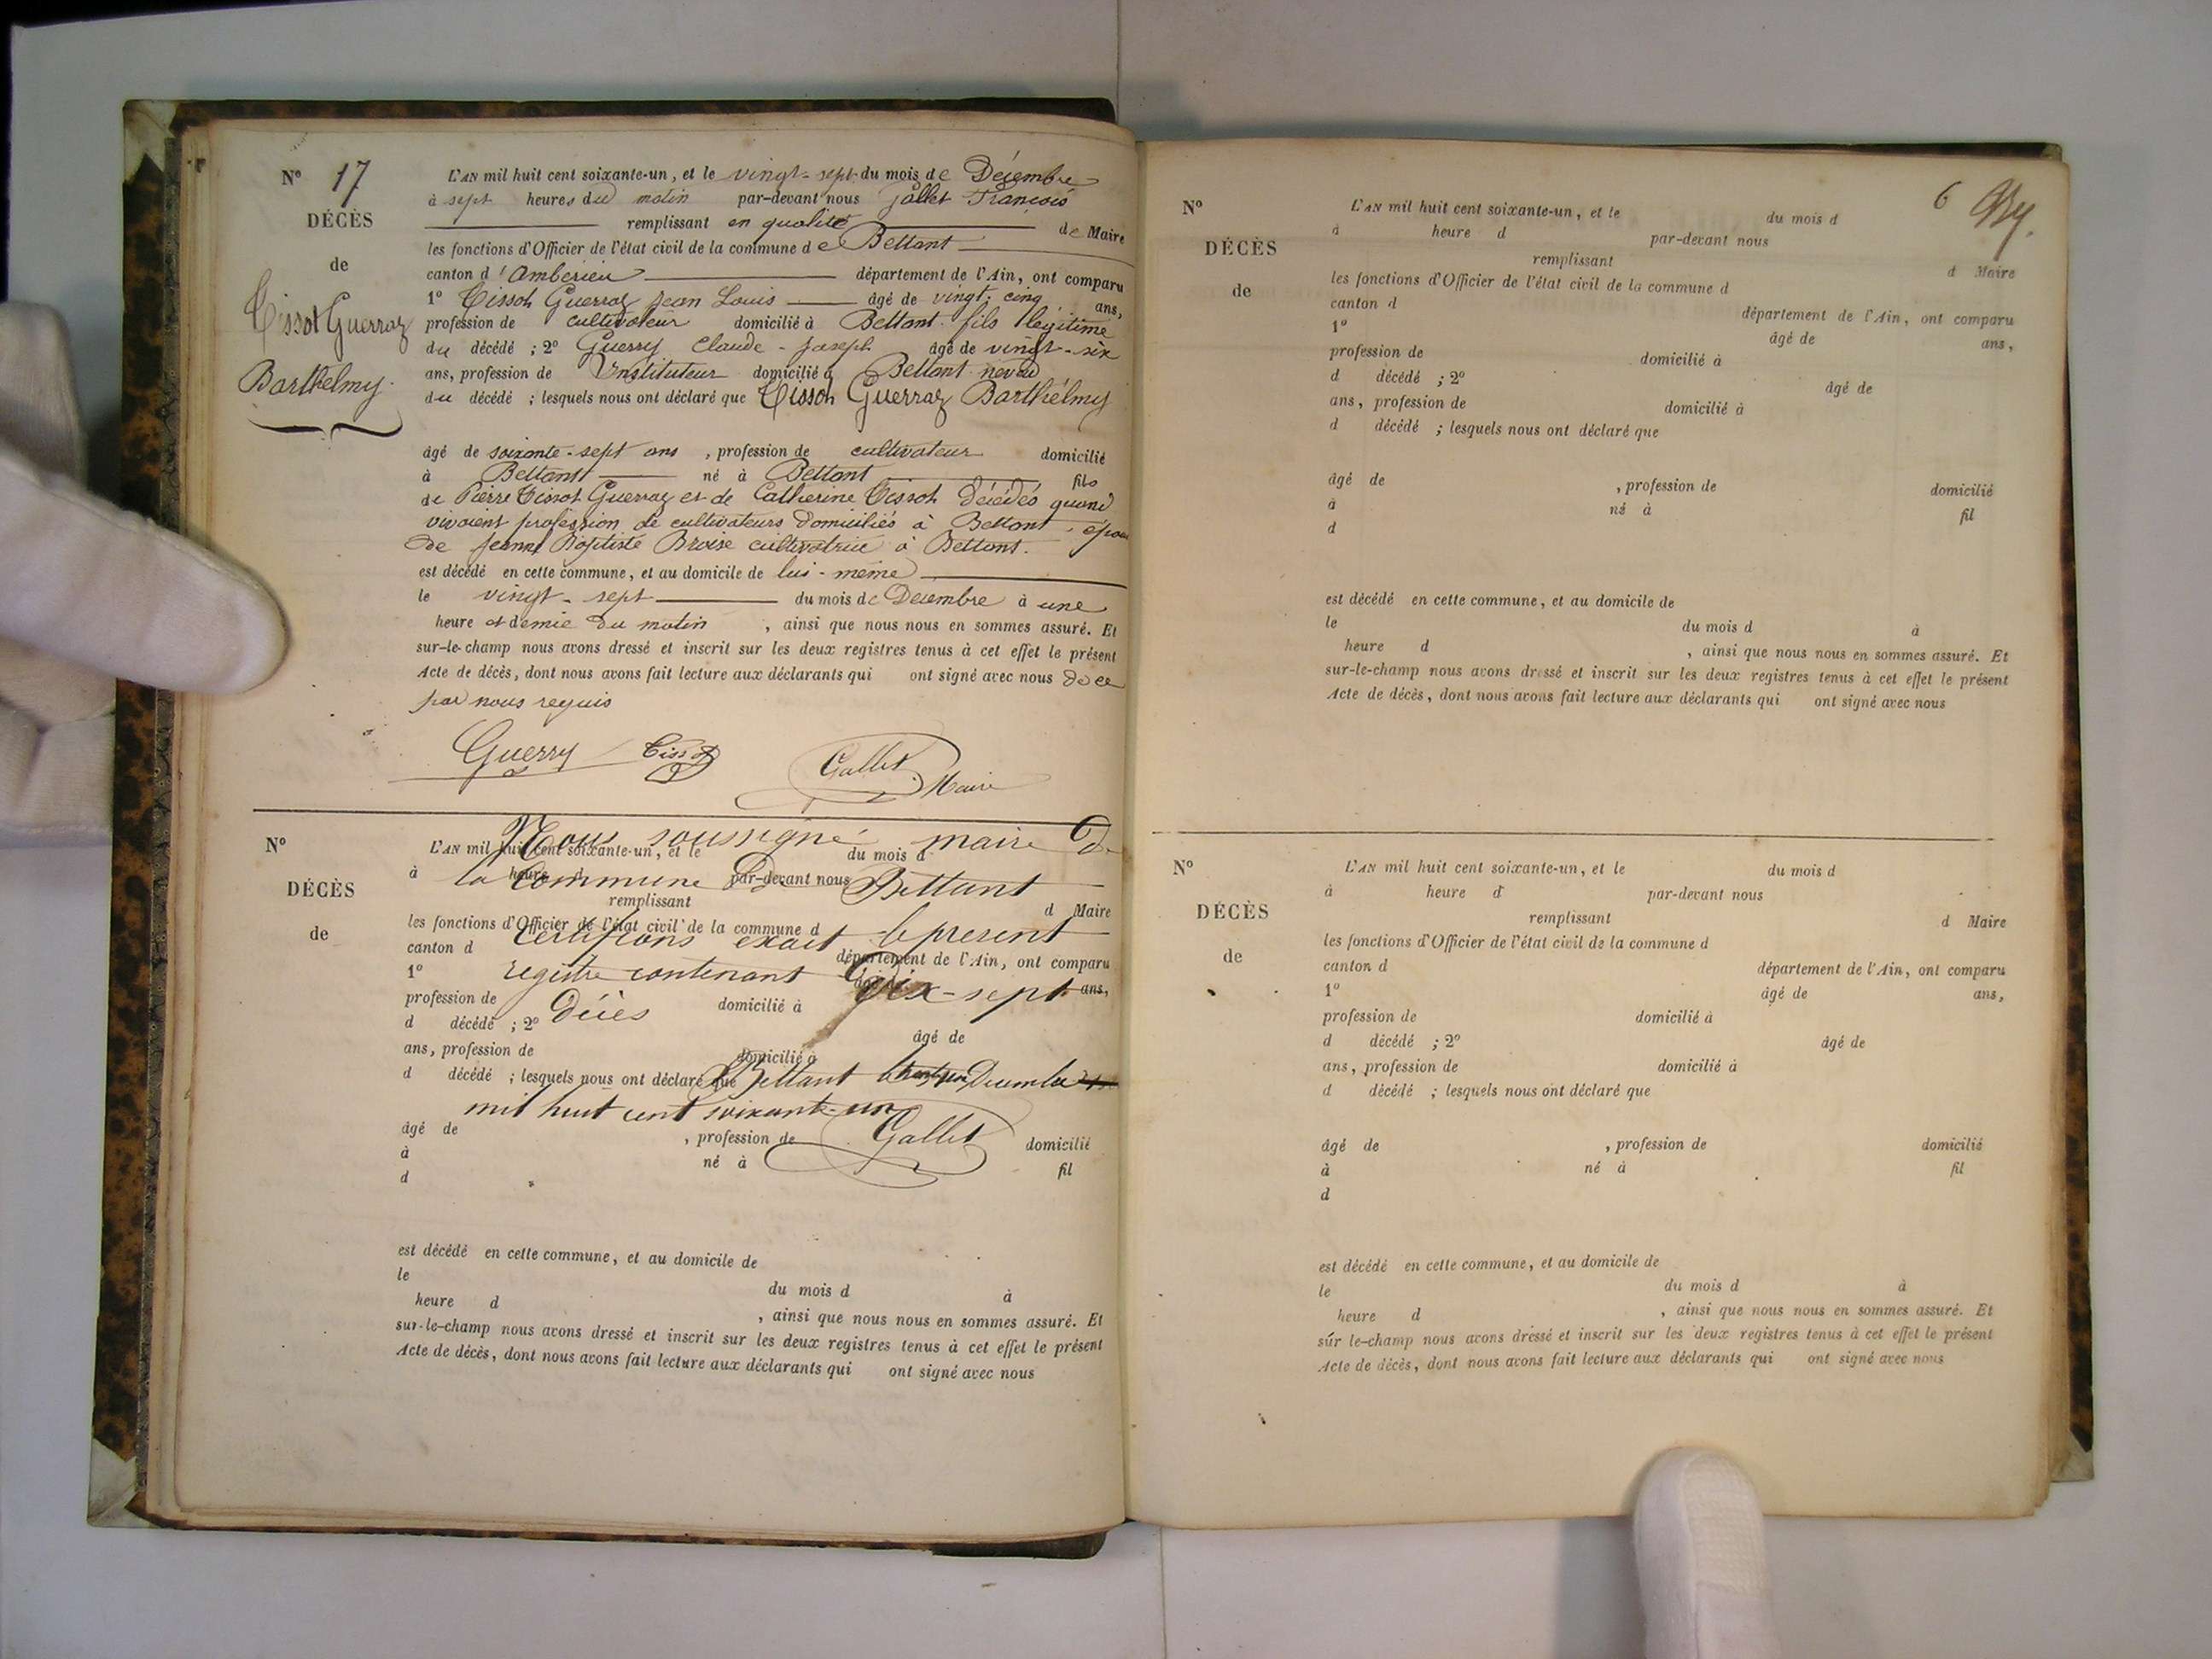 N° 17
DÉCÈS
de
Tissot Guerraz
Barthelmy.
L'AN mil huit cent soixante-un, et le vingt-sept du mois de Décembre
à sept heures du matin par-devant nous Jallet François
remplissant en qualité de Maire
les fonctions d'Officier de l'état civil de la commune de Bettant
canton d'Amberieu département de l'Ain, ont comparu
1° Tissot Guerraz Jean Louis âgé de vingt-cinq ans,
profession de cultivateur domicilié à Bettant fils légitime
du décédé ; 2° Guerry Claude-Joseph âgé de vingt-six
ans, profession de Instituteur domicilié à Bettant neveu
du décédé ; lesquels nous ont déclaré que Tissot Guerraz Barthélmy
âgé de soixante-sept ans, profession de cultivateur domicilié
à Bettant né à Bettant fils
de Pierre Tissot Guerraz et de Catherine Tissot décédés quand
vivaient profession de cultivateurs domiciliés à Bettant, époux
de Jeanne Baptiste Broise cultivatrice à Bettant.
est décédé en cette commune, et au domicile de lui-même
le vingt-sept du mois de Décembre à une
heure et demie du matin, ainsi que nous nous en sommes assuré. Et
sur-le-champ nous avons dressé et inscrit sur les deux registres tenus à cet effet le présent
Acte de décès, dont nous avons fait lecture aux déclarants qui ont signé avec nous de ce
par nous requis
Guerry Tissot Gallet Maire
N°
DÉCÈS
de
L'AN mil huit cent soixante-un, et le du mois d
à heure d par-devant nous
remplissant
d Maire
les fonctions d'Officier de l'état civil de la commune d
canton d
département de l'Ain, ont comparu
1° âgé de ans,
profession de domicilié à
d décédé ; 2°
âgé de
ans, profession de domicilié à
d décédé ; lesquels nous ont déclaré que
âgé de , profession de domicilié
à né à fil
d
Nous soussigné maire de
la commune de Bettant
certifions exact le présent
registre contenant dix-sept
décès
Bettant le Décembre
mil huit cent soixante-un
Gallet
est décédé en cette commune, et au domicile de
le du mois d à
heure d , ainsi que nous nous en sommes assuré. Et
sur-le-champ nous avons dressé et inscrit sur les deux registres tenus à cet effet le présent
Acte de décès, dont nous avons fait lecture aux déclarants qui ont signé avec nous
6
N°
DÉCÈS
de
L'AN mil huit cent soixante-un, et le du mois d
à heure d par-devant nous
remplissant
d Maire
les fonctions d'Officier de l'état civil de la commune d
canton d
département de l'Ain, ont comparu
1° âgé de ans,
profession de domicilié à
d décédé ; 2° âgé de
ans, profession de domicilié à
d décédé ; lesquels nous ont déclaré que
âgé de , profession de domicilié
à né à fil
d
est décédé en cette commune, et au domicile de
le du mois d à
heure d , ainsi que nous nous en sommes assuré. Et
sur-le-champ nous avons dressé et inscrit sur les deux registres tenus à cet effet le présent
Acte de décès, dont nous avons fait lecture aux déclarants qui ont signé avec nous
N°
DÉCÈS
de
L'AN mil huit cent soixante-un, et le du mois d
à heure d par-devant nous
remplissant d Maire
les fonctions d'Officier de l'état civil de la commune d
canton d département de l'Ain, ont comparu
1° âgé de ans,
profession de domicilié à
d décédé ; 2° âgé de
ans, profession de domicilié à
d décédé ; lesquels nous ont déclaré que
âgé de , profession de domicilié
à né à fil
d
est décédé en cette commune, et au domicile de
le du mois d à
heure d , ainsi que nous nous en sommes assuré. Et
sur le-champ nous avons dressé et inscrit sur les deux registres tenus à cet effet le présent
Acte de décès, dont nous avons fait lecture aux déclarants qui ont signé avec nous